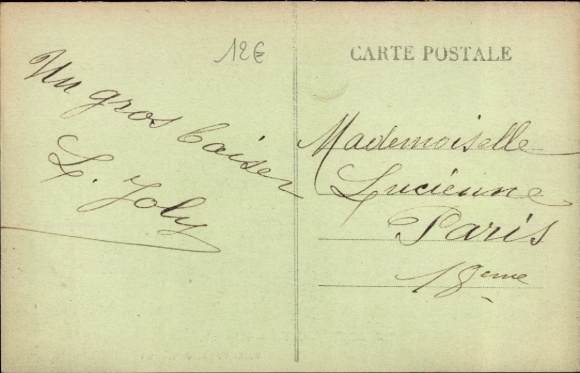 12€
CARTE POSTALE
Un gros baiser
L. Joly
Mademoiselle
Lucienne
Paris
18eme